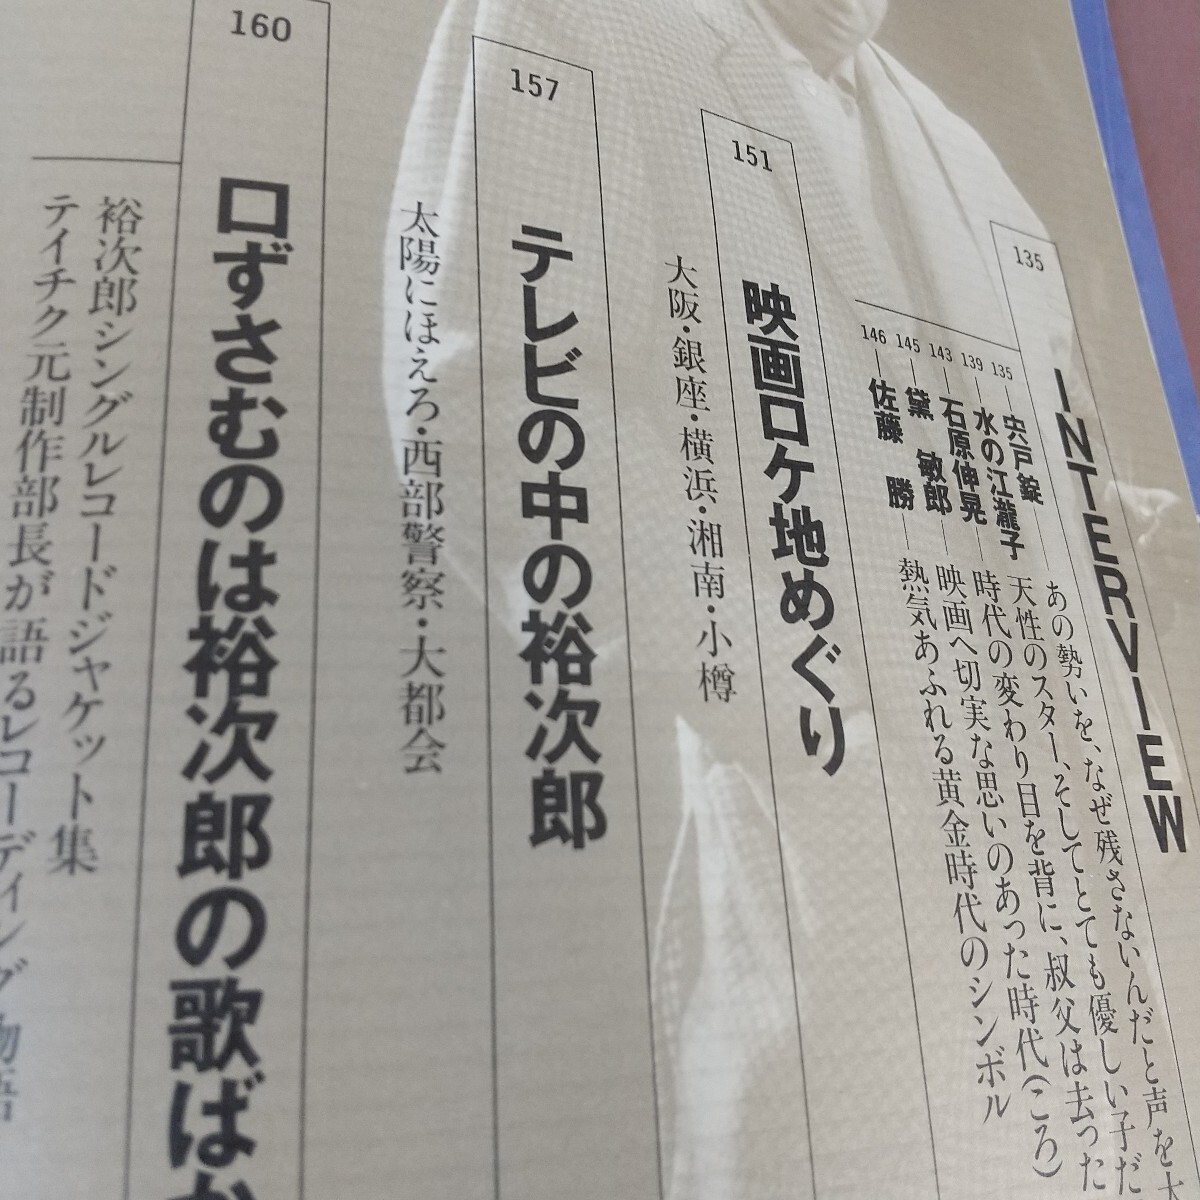 135
INTERVIEW
135 宍戸錠 あの勢いを、なぜ残さないんだと声を大
139 水の江瀧子 天性のスター、そしてとても優しい子だ
143 石原伸晃 時代の変わり目を背に、叔父は去った
145 黛 敏郎 映画へ切実な思いのあった時代(ころ)
146 佐藤 勝 熱気あふれる黄金時代のシンボル
151
映画ロケ地めぐり
大阪・銀座・横浜・湘南・小樽
157
テレビの中の裕次郎
太陽にほえろ・西部警察・大都会
160
口ずさむのは裕次郎の歌ばか
裕次郎シングルレコードジャケット集
テイチク元制作部長が語るレコーディング物語